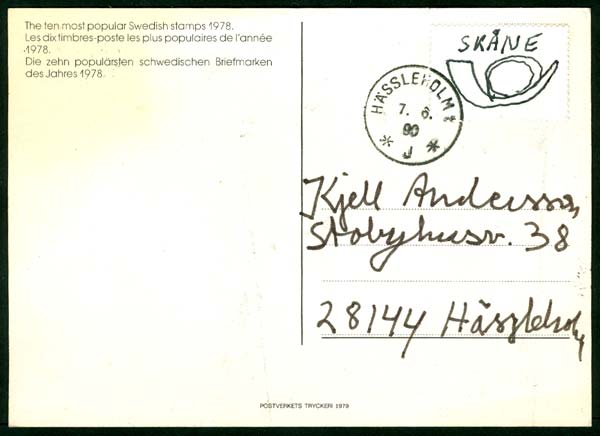 The ten most popular Swedish stamps 1978.
Les dix timbres-poste les plus populaires de l'année
1978.
Die zehn populärsten schwedischen Briefmarken
des Jahres 1978.
SKÅNE
HÄSSLEHOLM 1
7. 6.
90
* J *
Kjell Andersson
Stobyhusv. 38
28144 Hässleholm
POSTVERKETS TRYCKERI 1979